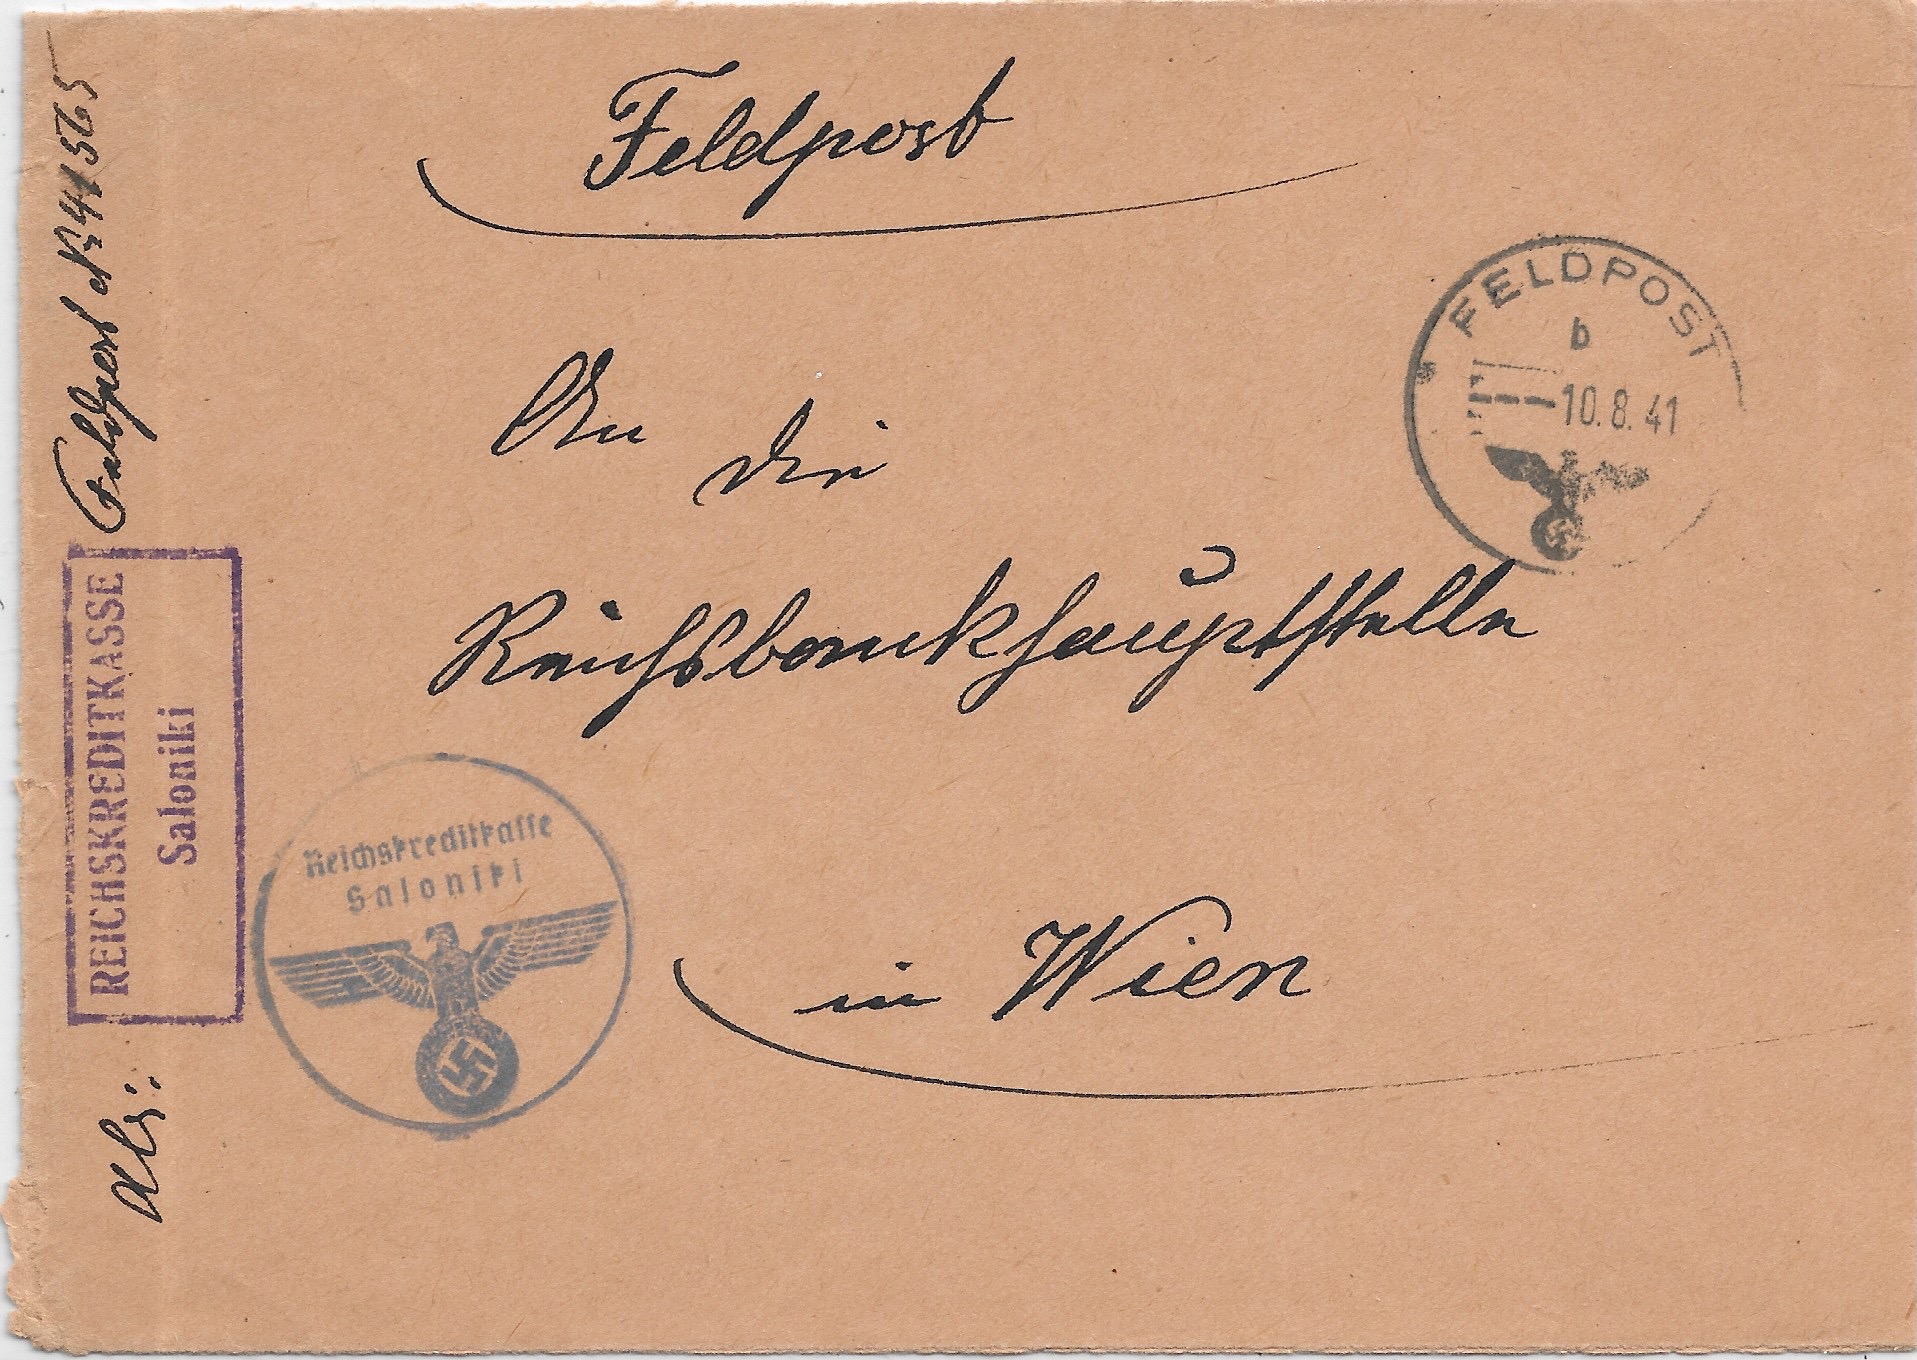 Feldpost
FELDPOST
b
10.8.41
An die
Reichsbankhauptstelle
in Wien
Reichskreditkasse
Saloniki
Abs.:
REICHSKREDITKASSE
Saloniki
Feldpost Nr 44565